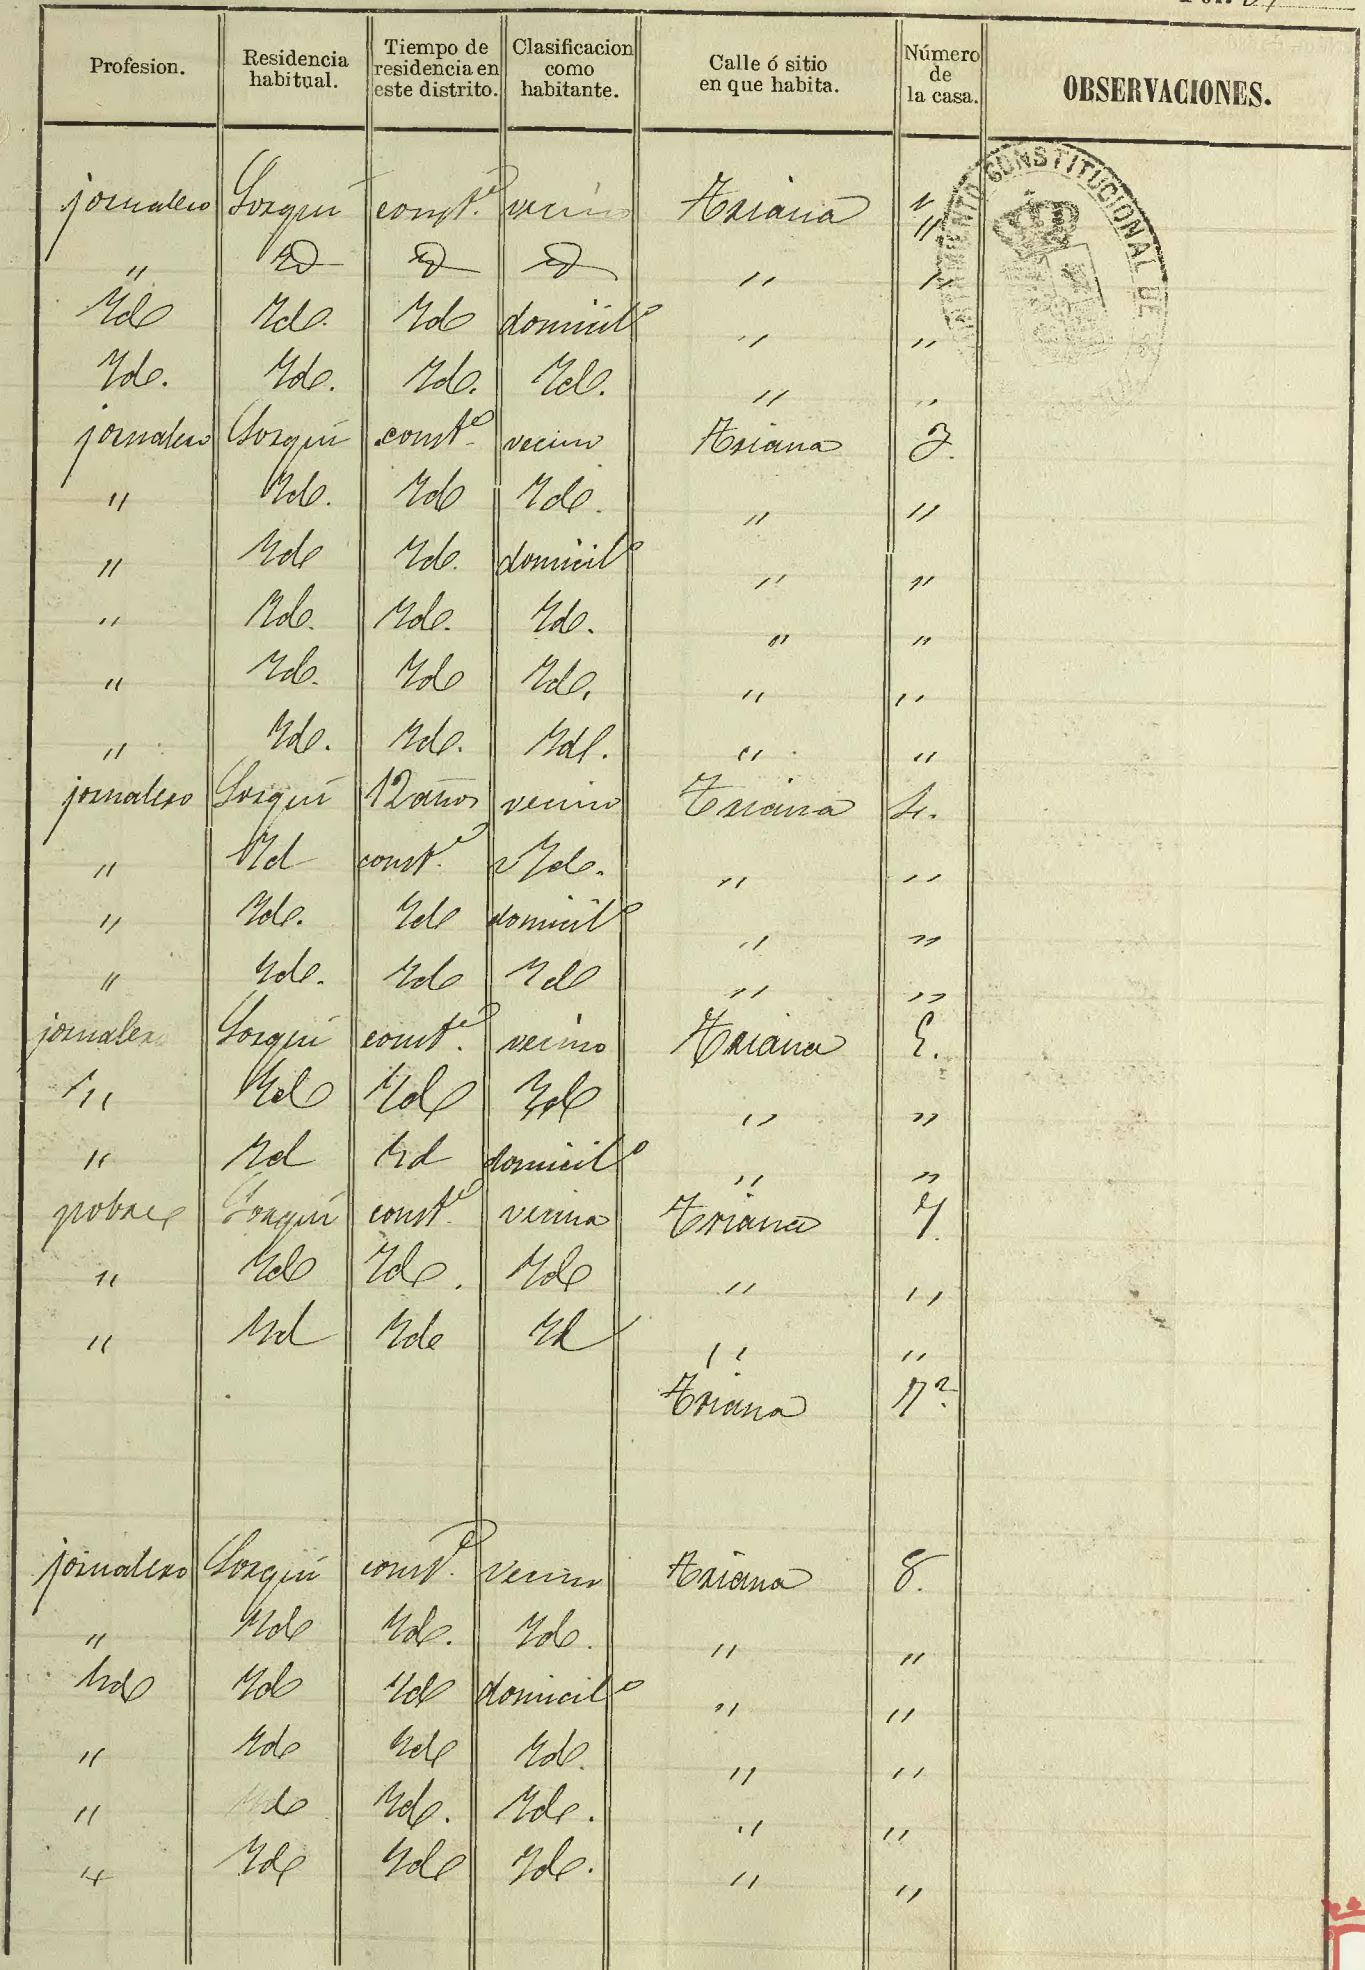 Profesion. Residencia habitual. Tiempo de residencia en este distrito. Clasificacion como habitante. Calle ó sitio en que habita. Número de la casa. OBSERVACIONES.
AYUNTAMIENTO CONSTITUCIONAL DE
jornalero Lorquí const.e vecino Triana " "
" id id id " "
Yde Yde. Yde domicil.o " "
Yde. Yde. Yde. Yde. " "
jornalero Lorquí const.e vecino Triana 3.
" Yde. Yde Yde. " "
" Yde Yde. domicil.o " "
" Yde. Yde. Yde. " "
" Yde. Yde Yde. " "
" Yde. Yde. Yde. " "
jornalero Lorquí 12 años vecino Triana 4.
" Yd const.e Yde. " "
" Yde. Yde domicil.o " "
" Yde. Yde Yde " "
jornalero Lorquí const.e vecino Triana 5.
" Yde Yde Yde " "
" Yd Yd domicil.o " "
pobre Lorquí const.e vecina Triana 7.
" Yde Yde. Yde " "
" Yd Yde Yd " "
Triana
jornalero Lorquí const.e vecino Triana 8.
" Yde Yde. Yde. " "
Yde Yde Yde domicil.o " "
" Yde Yde Yde. " "
" Yde Yde. Yde. " "
" Yde Yde Yde. " "